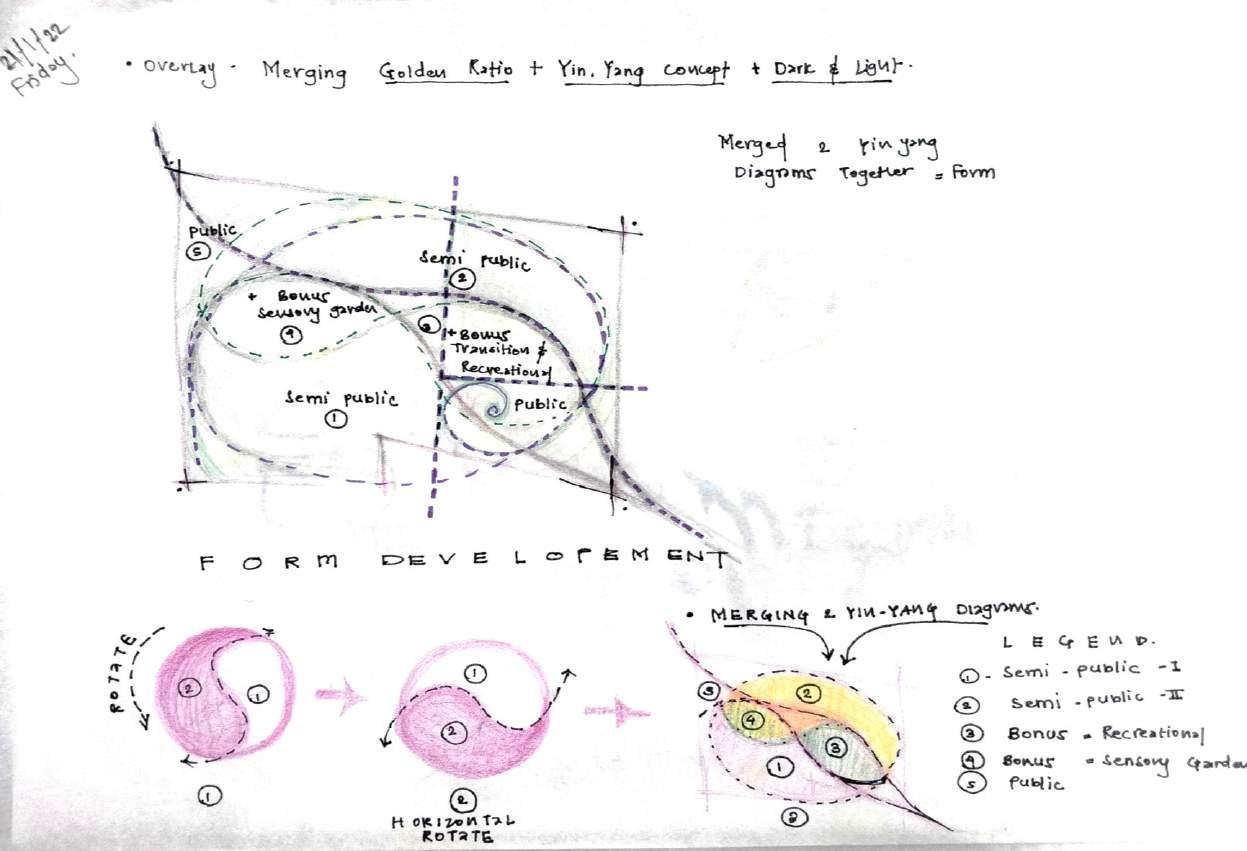 21/1/22
Friday.
• Overlay - Merging Golden Ratio + Yin.Yang concept + Dark & Light.
Merged 2 Yin yang
Diagrams Together = Form
Public
5
Semi Public
2
+ Bonus
Sensory garden
4
3
+ Bonus
Transition &
Recreational
Semi public
1
Public
FORM DEVELOPEMENT
ROTATE
2
1
1
1
2
2
HORIZONTAL
ROTATE
• MERGING 2 YIN-YANG Diagrams.
5
2
4
3
1
3
LEGEND.
1 - Semi - public - I
2 Semi - public - II
3 Bonus = Recreational
4 Bonus = Sensory Garden
5 Public